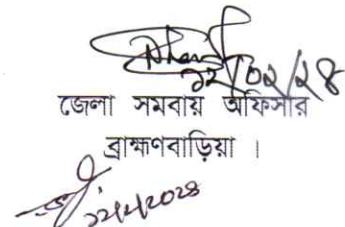 ২২/০২/২৪
জেলা সমবায় অফিসার
ব্রাহ্মণবাড়িয়া ।
২২/২/২০২৪